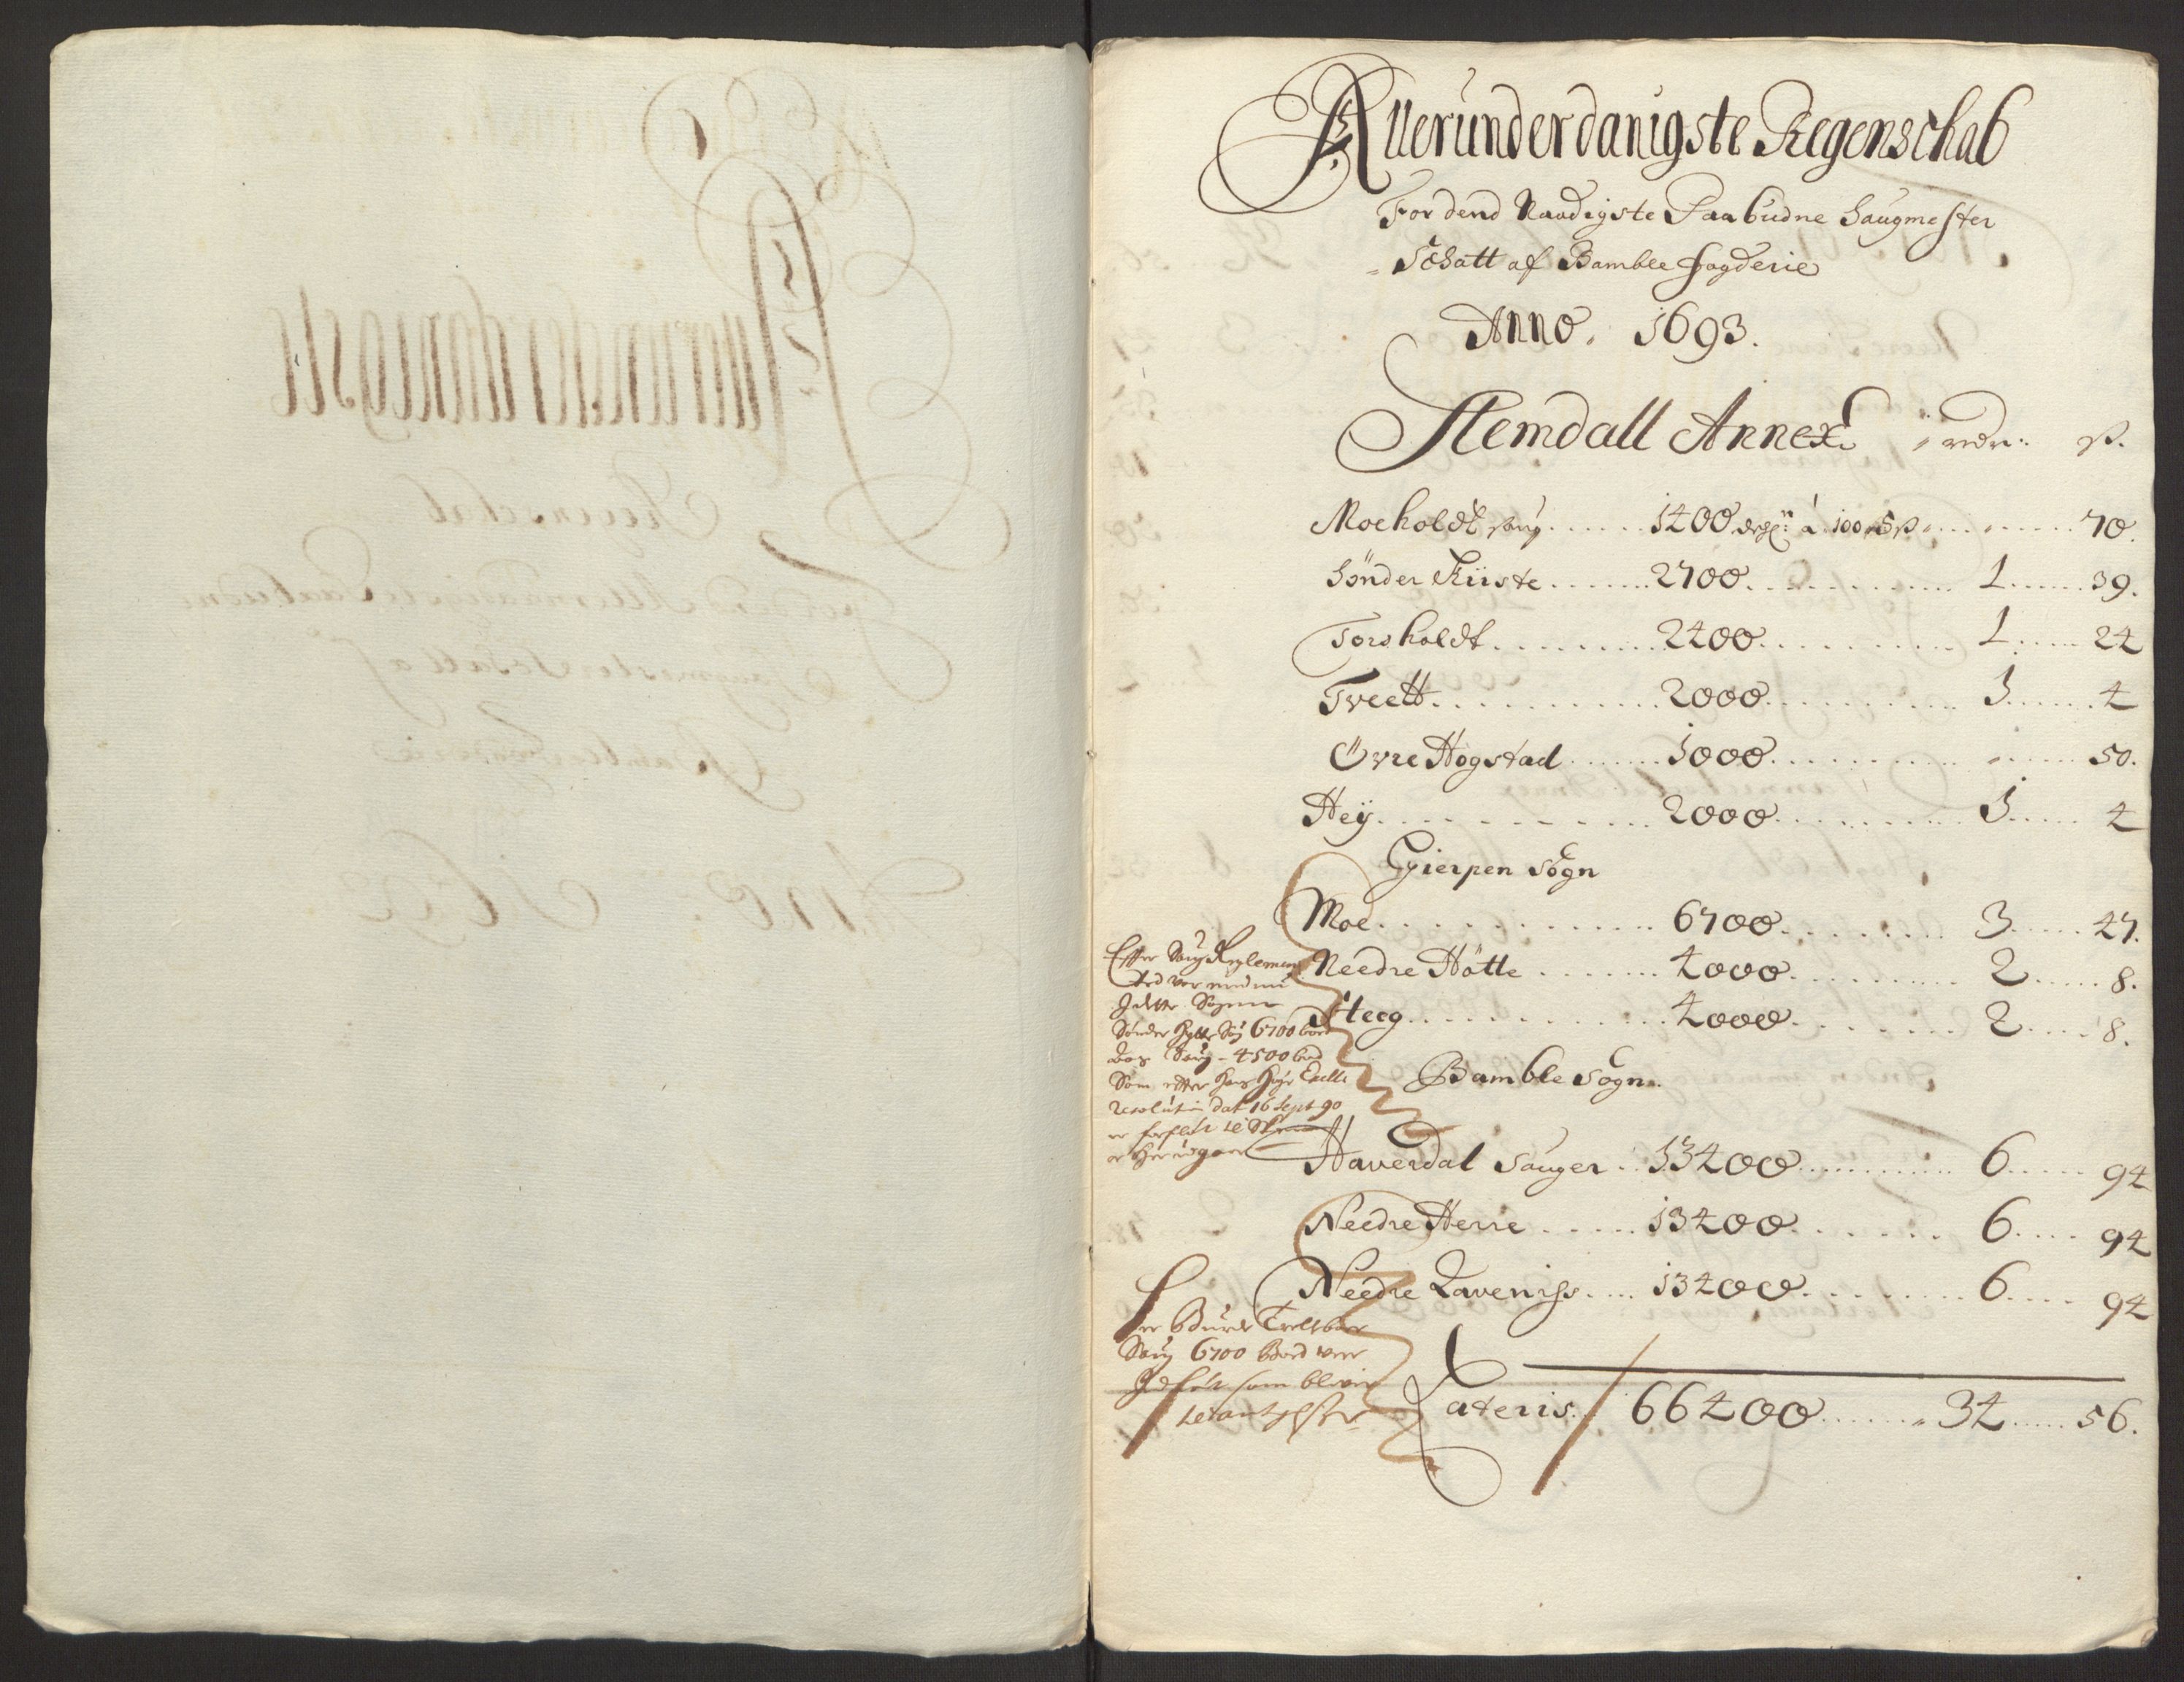 Allerunderdanigste Regenschab
For dend Naadigste Paabudne Saugmester
Schatt af Bamble Fogderie
Anno. 1693.
Slemdall Annex rdr: ß.
Moeholdt saug 1400 à 100 5 ß 70.
Sönder Kiiste 2700 1 39.
Torsholdt 2400 1 24
Tveett 2000 1 4
Övre Hogstad 1000 50.
Heÿ 2000 1 4
Gierpen Sogn
Moe 6700 3 47.
Needre Hötte 4000 2 8.
Steeg 4000 2 8.
Bamble Sogn.
Haverdal Sauger 13400 6 94
Needre Herre 13400 6 94
Needre Laveniss 13400 6 94
Lateris 66400 34 56.
Efter Saug Reglement
Sönder Hytte Saug 6700 bord
Saug - 4500 bord
Som efter hans Höje Excell
resolution dat 16 Sept 90
Saug 6700 Bord
som bliver